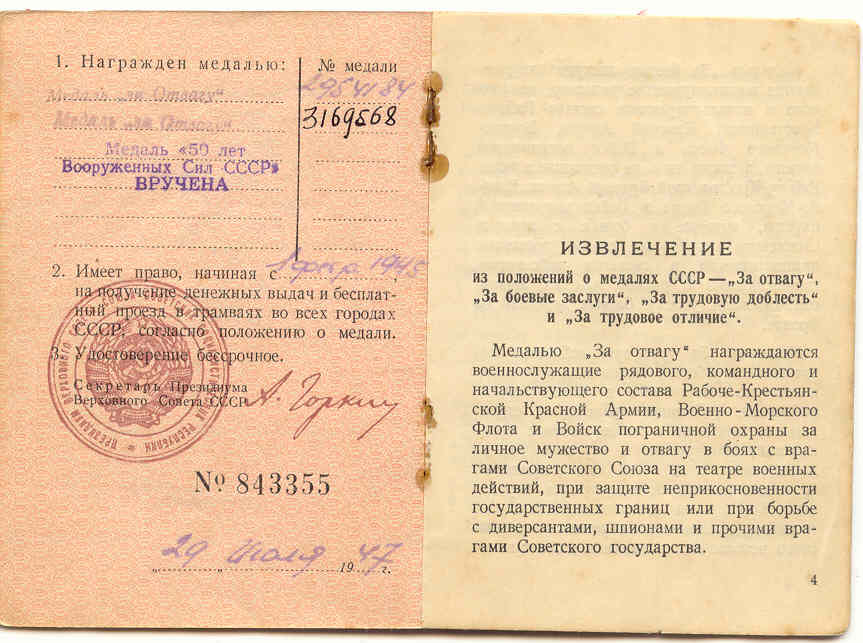 1. Награжден медалью:
№ медали
Медаль „за Отвагу“
2954184
Медаль „за Отвагу“
3169568
Медаль «50 лет
Вооруженных Сил СССР»
ВРУЧЕНА
2. Имеет право, начиная с 1 1945
на получение денежных выдач и бесплат-
ный проезд в трамваях во всех городах
СССР, согласно положению о медали.
3. Удостоверение бессрочное.
Секретарь Президиума
Верховного Совета СССР А. Горкин
№ 843355
„ 29 “ Июля 1947 г.
ИЗВЛЕЧЕНИЕ
из положений о медалях СССР—„За отвагу“,
„За боевые заслуги“, „За трудовую доблесть“
и „За трудовое отличие“.
Медалью „За отвагу“ награждаются
военнослужащие рядового, командного и
начальствующего состава Рабоче-Крестьян-
ской Красной Армии, Военно-Морского
Флота и Войск пограничной охраны за
личное мужество и отвагу в боях с вра-
гами Советского Союза на театре военных
действий, при защите неприкосновенности
государственных границ или при борьбе
с диверсантами, шпионами и прочими вра-
гами Советского государства.
4